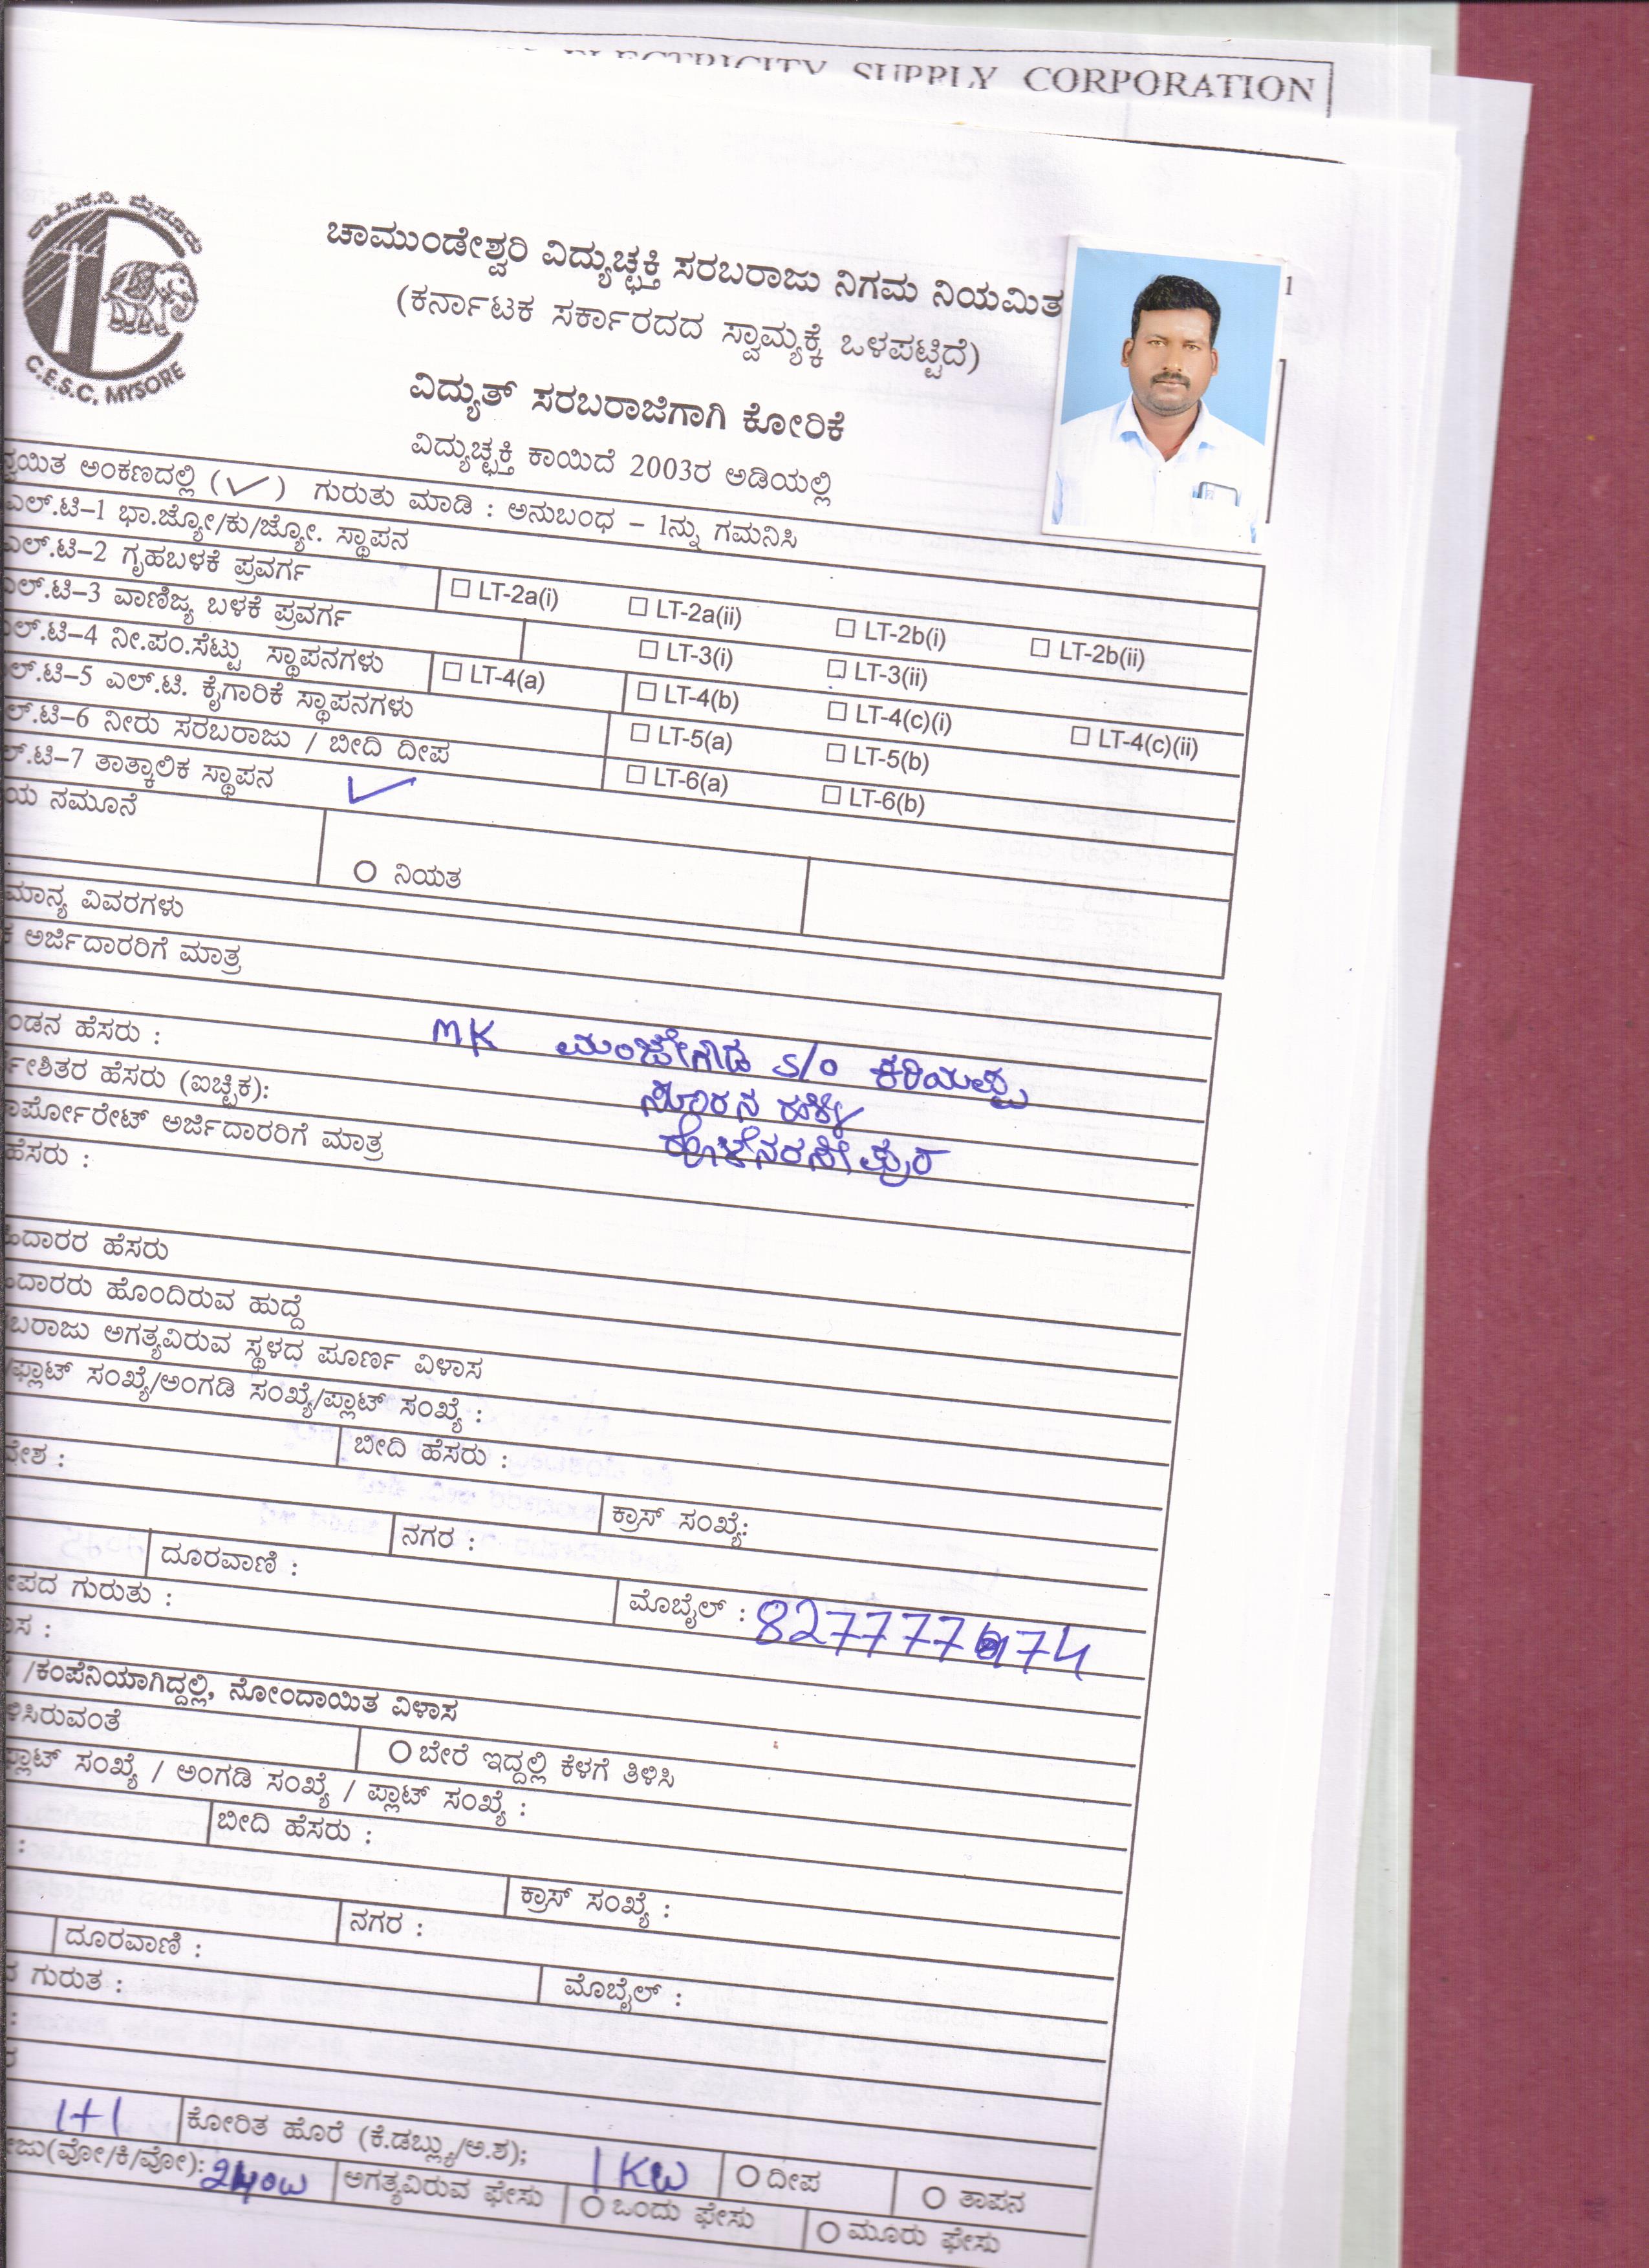 ELECTRICITY SUPPLY CORPORATION
1
ಚಾ.ವಿ.ಸ.ನಿ. ಮೈಸೂರು
C.E.S.C. MYSORE
ಚಾಮುಂಡೇಶ್ವರಿ ವಿದ್ಯುಚ್ಛಕ್ತಿ ಸರಬರಾಜು ನಿಗಮ ನಿಯಮಿತ
(ಕರ್ನಾಟಕ ಸರ್ಕಾರದದ ಸ್ವಾಮ್ಯಕ್ಕೆ ಒಳಪಟ್ಟಿದೆ)
ವಿದ್ಯುತ್ ಸರಬರಾಜಿಗಾಗಿ ಕೋರಿಕೆ
ವಿದ್ಯುಚ್ಛಕ್ತಿ ಕಾಯಿದೆ 2003ರ ಅಡಿಯಲ್ಲಿ
ಅಂಕಣದಲ್ಲಿ (✓) ಗುರುತು ಮಾಡಿ : ಅನುಬಂಧ – 1ನ್ನು ಗಮನಿಸಿ
ಎಲ್.ಟಿ–1 ಭಾ.ಜ್ಯೋ/ಕು/ಜ್ಯೋ. ಸ್ಥಾಪನ
ಎಲ್.ಟಿ–2 ಗೃಹಬಳಕೆ ಪ್ರವರ್ಗ ☐ LT-2a(i) ☐ LT-2a(ii) ☐ LT-2b(i) ☐ LT-2b(ii)
ಎಲ್.ಟಿ–3 ವಾಣಿಜ್ಯ ಬಳಕೆ ಪ್ರವರ್ಗ ☐ LT-3(i) ☐ LT-3(ii)
ಲ್.ಟಿ–4 ನೀ.ಪಂ.ಸೆಟ್ಟು ಸ್ಥಾಪನಗಳು ☐ LT-4(a) ☐ LT-4(b) ☐ LT-4(c)(i) ☐ LT-4(c)(ii)
ಲ್.ಟಿ–5 ಎಲ್.ಟಿ. ಕೈಗಾರಿಕೆ ಸ್ಥಾಪನಗಳು ☐ LT-5(a) ☐ LT-5(b)
ಲ್.ಟಿ–6 ನೀರು ಸರಬರಾಜು / ಬೀದಿ ದೀಪ ☐ LT-6(a) ☐ LT-6(b)
ಲ್.ಟಿ–7 ತಾತ್ಕಾಲಿಕ ಸ್ಥಾಪನ ✓
ಯ ನಮೂನೆ ○ ನಿಯತ
ಮಾನ್ಯ ವಿವರಗಳು
ಅರ್ಜಿದಾರರಿಗೆ ಮಾತ್ರ
ಂಡನ ಹೆಸರು : MK ಮಂಜೇಗೌಡ S/O ಕರಿಯಪ್ಪ
ೇಶಿತರ ಹೆಸರು (ಐಚ್ಛಿಕ):
ಾರ್ಪೋರೇಟ್ ಅರ್ಜಿದಾರರಿಗೆ ಮಾತ್ರ ಹೊಳೆನರಸೀಪುರ
ಹೆಸರು :
ದಾರರ ಹೆಸರು
ದಾರರು ಹೊಂದಿರುವ ಹುದ್ದೆ
ಬರಾಜು ಅಗತ್ಯವಿರುವ ಸ್ಥಳದ ಪೂರ್ಣ ವಿಳಾಸ
/ಫ್ಲಾಟ್ ಸಂಖ್ಯೆ/ಅಂಗಡಿ ಸಂಖ್ಯೆ/ಪ್ಲಾಟ್ ಸಂಖ್ಯೆ :
ಬೀದಿ ಹೆಸರು :
ದೇಶ : ಕ್ರಾಸ್ ಸಂಖ್ಯೆ:
ನಗರ :
ದೂರವಾಣಿ : ಮೊಬೈಲ್ :
ೀಪದ ಗುರುತು :
ಾಸ :
/ಕಂಪೆನಿಯಾಗಿದ್ದಲ್ಲಿ, ನೋಂದಾಯಿತ ವಿಳಾಸ
ಳಿಸಿರುವಂತೆ ○ ಬೇರೆ ಇದ್ದಲ್ಲಿ ಕೆಳಗೆ ತಿಳಿಸಿ
ಫ್ಲಾಟ್ ಸಂಖ್ಯೆ / ಅಂಗಡಿ ಸಂಖ್ಯೆ / ಪ್ಲಾಟ್ ಸಂಖ್ಯೆ :
ಬೀದಿ ಹೆಸರು :
: ಕ್ರಾಸ್ ಸಂಖ್ಯೆ :
ನಗರ :
ದೂರವಾಣಿ : ಮೊಬೈಲ್ :
ಗುರುತ :
1+1 ಕೋರಿತ ಹೊರೆ (ಕೆ.ಡಬ್ಲ್ಯು/ಅ.ಶ); 1 KW ○ ದೀಪ ○ ತಾಪನ
ೇಜು(ವೋ/ಕಿ/ವೋ): 240W ಅಗತ್ಯವಿರುವ ಫೇಸು ○ ಒಂದು ಫೇಸು ○ ಮೂರು ಫೇಸು